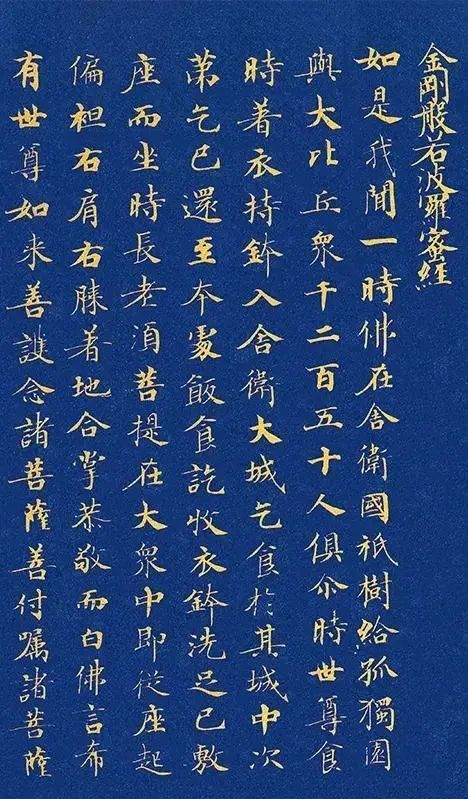 金剛般若波羅蜜經
如是我聞一時佛在舍衛國祇樹給孤獨園
與大比丘眾千二百五十人俱尒時世尊食
時著衣持鉢入舍衛大城乞食於其城中次
第乞已還至本處飯食訖收衣鉢洗足已敷
座而坐時長老須菩提在大眾中即從座起
偏袒右肩右膝著地合掌恭敬而白佛言希
有世尊如来善護念諸菩薩善付嘱諸菩薩